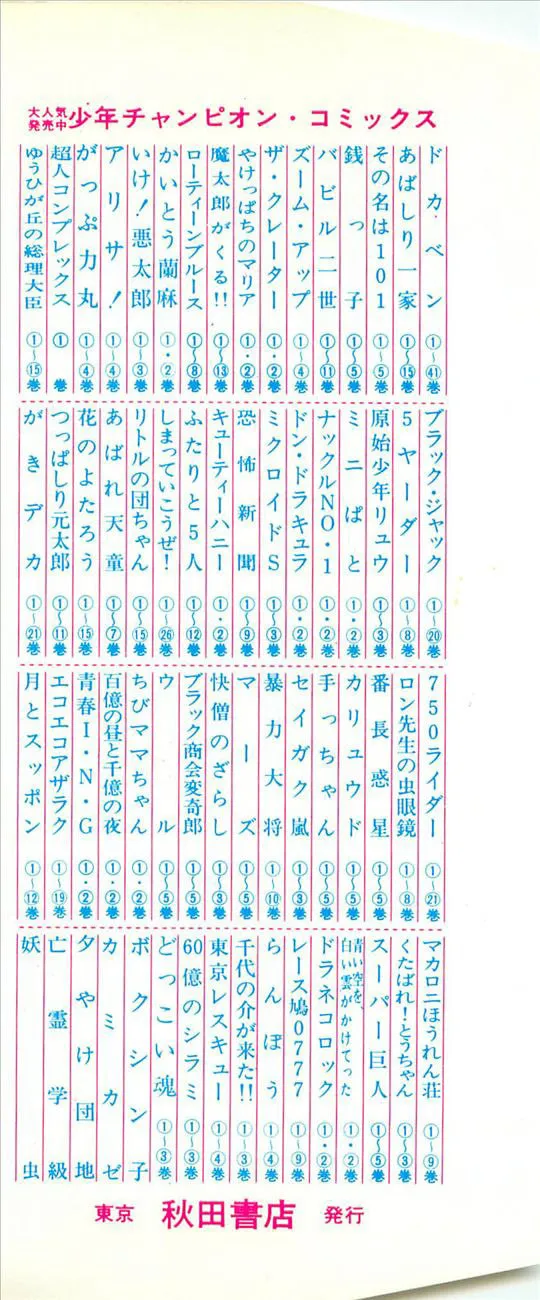 大人気発売中 少年チャンピオン・コミックス
ドカベン ①~㊶巻
あばしり一家 ①~⑮巻
その名は101 ①~⑤巻
銭っ子 ①~⑤巻
バビル二世 ①~⑪巻
ズーム・アップ ①~④巻
ザ・クレーター ①・②巻
やけっぱちのマリア ①・②巻
魔太郎がくる!! ①~⑬巻
ローティーンブルース ①~⑧巻
かいとう蘭麻 ①・②巻
いけ!悪太郎 ①~③巻
アリサ! ①~④巻
がっぷ力丸 ①~④巻
超人コンプレックス ①巻
ゆうひが丘の総理大臣 ①~⑮巻
ブラック・ジャック ①~⑳巻
5ヤーダー ①~⑧巻
原始少年リュウ ①~③巻
ミニぱと ①・②巻
ナックルNO・1 ①・②巻
ドン・ドラキュラ ①・②巻
ミクロイドS ①~③巻
恐怖新聞 ①~⑨巻
キューティーハニー ①・②巻
ふたりと5人 ①~⑫巻
しまっていこうぜ! ①~㉖巻
リトルの団ちゃん ①~⑮巻
あばれ天童 ①~⑦巻
花のよたろう ①~⑮巻
つっぱしり元太郎 ①~⑪巻
がきデカ ①~㉑巻
750ライダー ①~㉑巻
ロン先生の虫眼鏡 ①~⑧巻
番長惑星 ①~⑤巻
カリュウド ①~⑤巻
手っちゃん ①~⑤巻
セイガク嵐 ①~③巻
暴力大将 ①~⑩巻
マーズ ①~⑤巻
快僧のざらし ①~③巻
ブラック商会変奇郎 ①~⑤巻
ウル ①~⑤巻
ちびママちゃん ①・②巻
百億の昼と千億の夜 ①・②巻
青春I・N・G ①・②巻
エコエコアザラク ①~⑲巻
月とスッポン ①~⑫巻
マカロニほうれん荘 ①~⑨巻
くたばれ!とうちゃん ①~③巻
スーパー巨人 ①~⑤巻
青い空を、白い雲がかけてった ①・②巻
ドラネコロック ①・②巻
レース鳩0777 ①~⑨巻
らんぽう ①~④巻
千代の介が来た!! ①~③巻
東京レスキュー ①~④巻
60億のシラミ ①~③巻
どっこい魂 ①~③巻
ボクシン子
カミカゼ
夕やけ団地
亡霊学級
妖虫
東京 秋田書店 発行